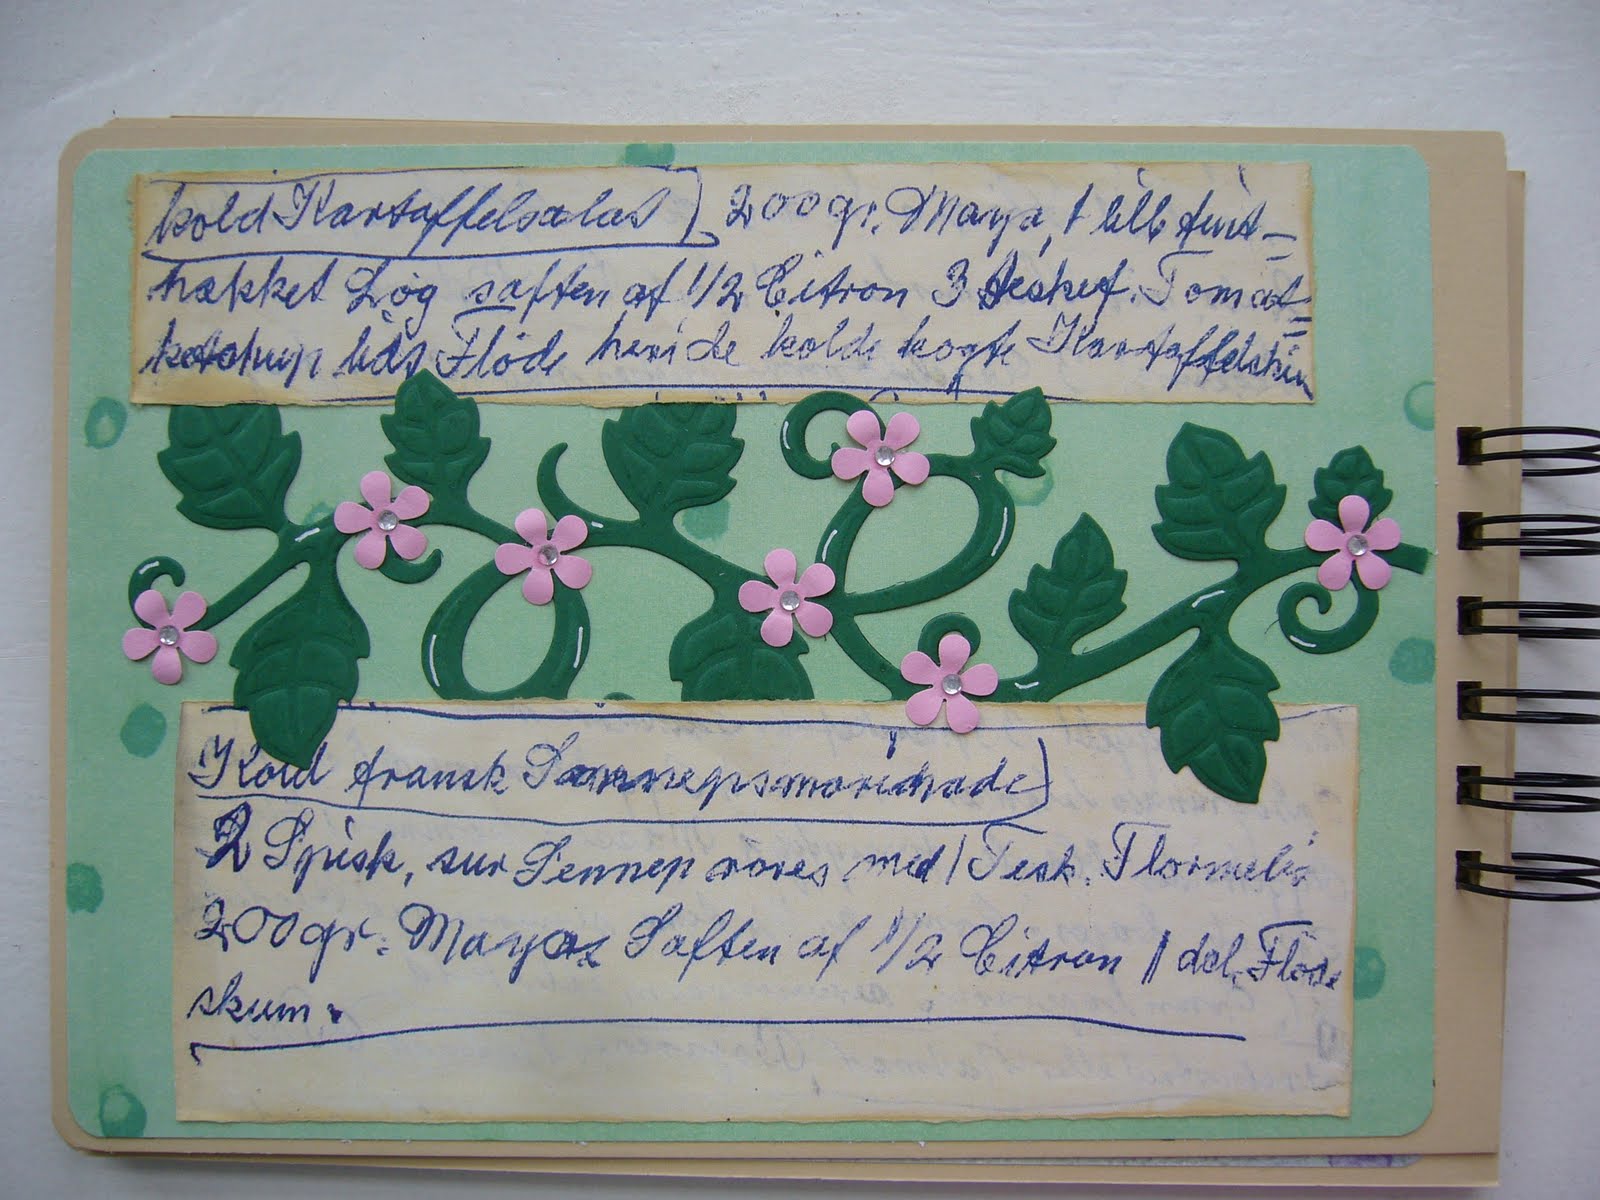 kold Kartaffelsalat) 200gr. Maya, 1 lille fint-
hakket Løg saften af 1/2 Citron 3 teskef. Tomat=
ketchup lidt Fløde heri de kolde kogte Kartaffelskiv
Kold fransk Sennepsmarinade)
2 Spisk, sur Sennep røres med 1 Tesk. Flormelis
200gr. Mayo Saften af 1/2 Citron 1 del. Fløde
skum.